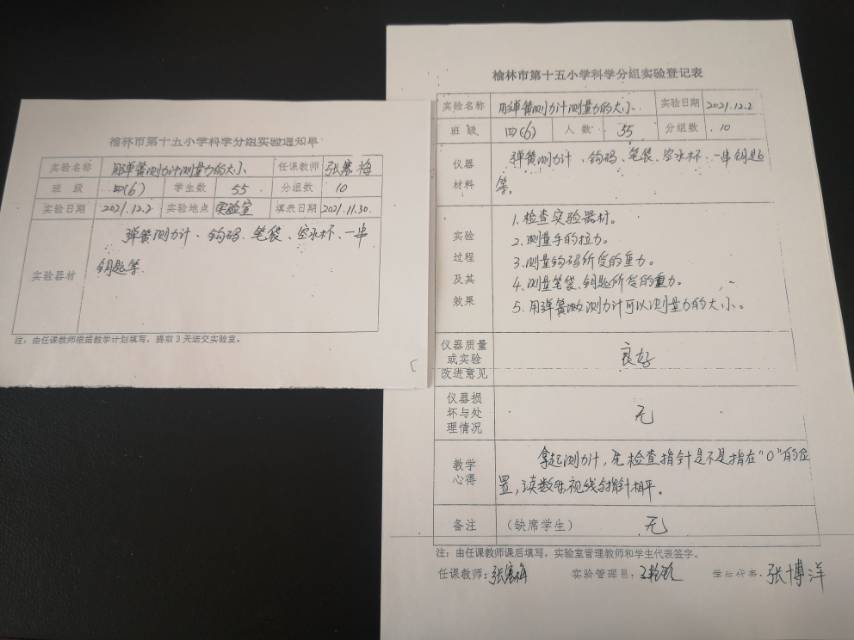 榆林市第十五小学科学分组实验通知单
实验名称 用弹簧测力计测量力的大小 任课教师 张寒梅
班 级 四(6) 学生数 55 分组数 10
实验日期 2021.12.2 实验地点 实验室 填表日期 2021.11.30.
实验器材 弹簧测力计、钩码、笔袋、空水杯、一串
钥匙等.
注:由任课教师依据教学计划填写,提取3天送交实验室。
榆林市第十五小学科学分组实验登记表
实验名称 用弹簧测力计测量力的大小. 实验日期 2021.12.2
班 级 四(6) 人 数 55 分组数 10
仪器材料 弹簧测力计、钩码、笔袋、空水杯、一串钥匙
等。
实验过程及其效果
1.检查实验器材。
2.测量手的拉力。
3.测量钩码所受的重力。
4.测量笔袋、钥匙所受的重力。
5.用弹簧测力计可以测量力的大小。
仪器质量或实验改进意见 良好
仪器损坏与处理情况 无
教学心得 拿起测力计,先检查指针是不是指在"0"的位
置,读数时视线与指针相平。
备注 (缺席学生) 无
注:由任课教师课后填写,实验室管理教师和学生代表签字。
任课教师:张寒梅 实验管理员: 学生代表:张博洋